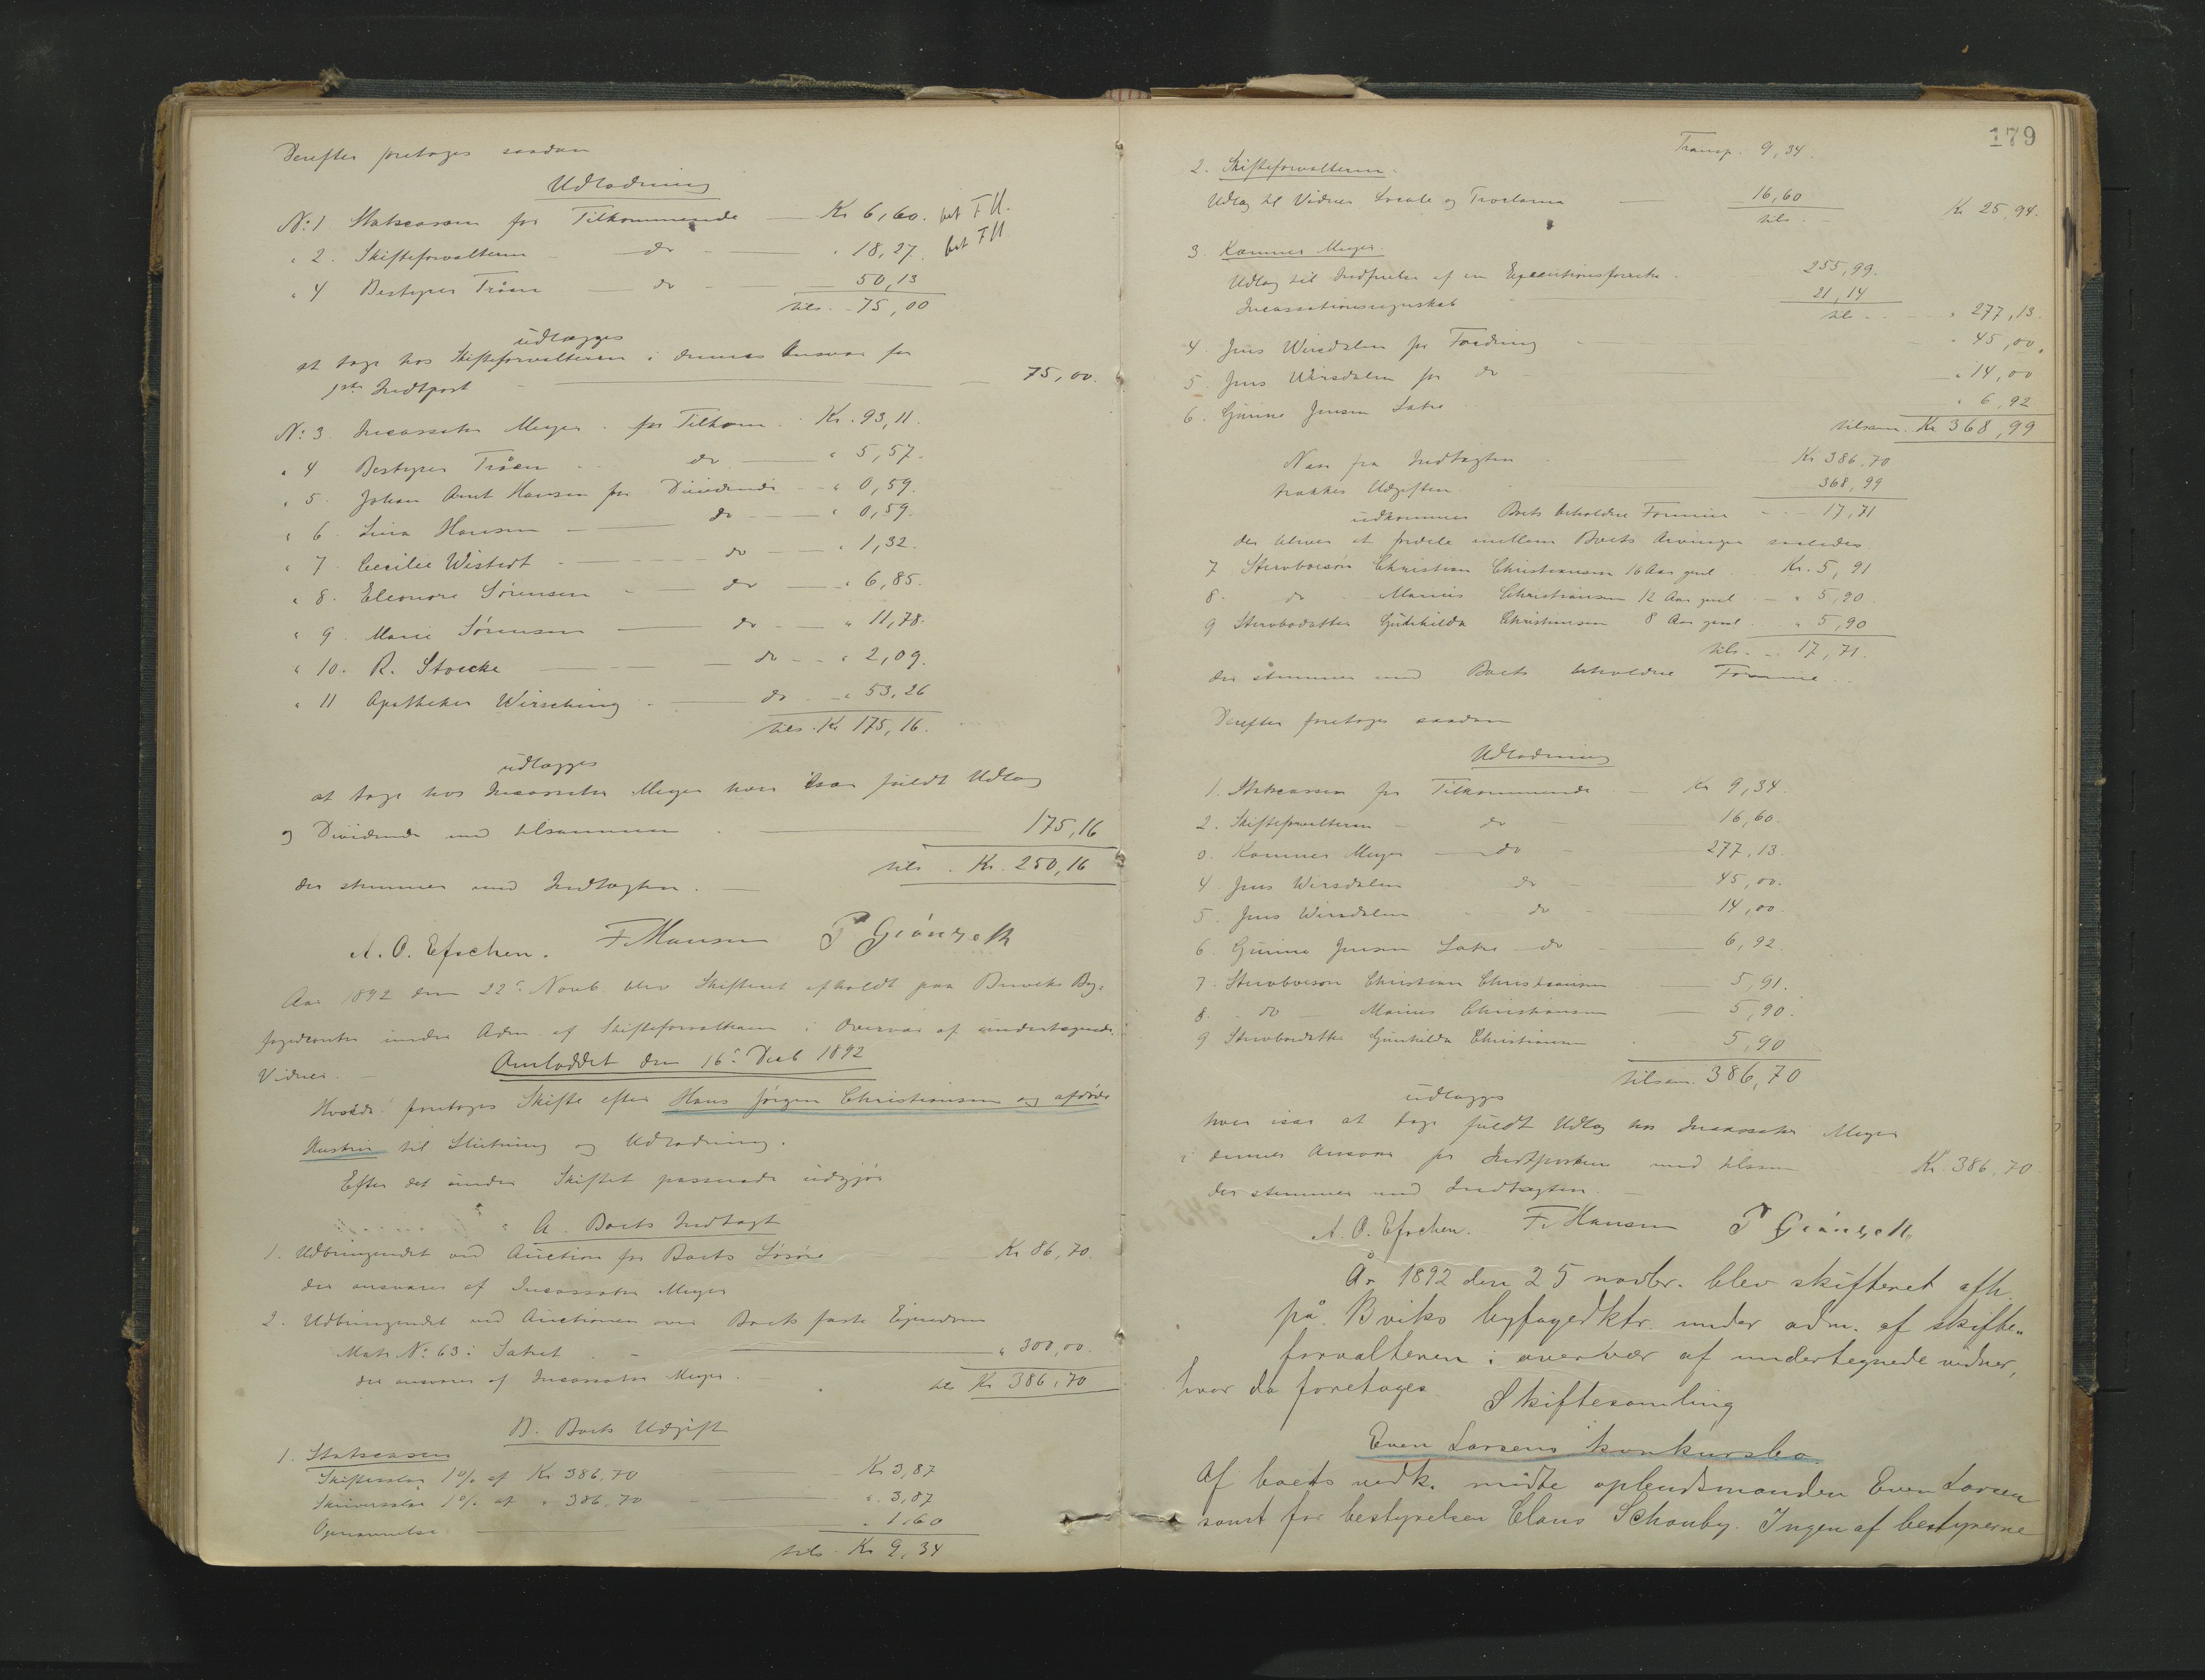 Derefter foretages saadan
Udlodning
No: 1 Statscassen for Tilkommende — Kr 6,60. bet FH.
" 2. Skifteforvalteren — do — " 18,27. bet FH
" 4 Bestyrer Tråen — do — 50,13
tils. - 75,00
udlægges
at tage hos Skifteforvalteren i dennes Ansvar for
1ste Indtpost — 75,00.
No: 3. Incassator Meyer. for Tilkom. Kr. 93,11.
" 4 Bestyrer Tråen — do — " 5,57.
" 5. Johan Arnt Hansen for Dividende — " 0,59.
" 6. Lina Hansen — do — " 0,59.
" 7. Cecilie Wistedt — do — " 1,32.
" 8. Eleonore Sørensen — do — " 6,85.
" 9. Marie Sørensen — do — " 11,78.
" 10. R. Stoecke — do — " 2,09.
" 11 Apotheker Wirsching — do — " 53,26
tils. Kr 175,16.
udlægges
at tage hos Incassator Meyer hver især fuldt Udlæg
og Dividende med tilsammen — 175,16
tils. Kr. 250,16
der stemmer med Indtægten. —
A. O. Efschen. F. Hansen P Grönseth
Aar 1892 den 22de Novb. blev Skifteret afholdt paa Breviks By-
fogedcontor under Adm. af Skifteforvalteren i Overvær af undertegnede
Vidner. —
Omloddet den 16de Decb 1892
Hvorda foretoges Skifte efter Hans Jørgen Christiansen og afdøde
Hustru til Slutning og Udlodning.
Efter det under Skiftet passerede udgjør
A. Boets Indtægt
1. Udbringendet ved Auction for Boets Løsøre — Kr 86,70.
der ansvares af Incassator Meyer
2. Udbringendet ved Auctionen over Boets faste Eiendom
Matr No: 63 i Sætret — " 300,00.
der ansvares af Incassator Meyer. tils Kr 386,70
B. Boets Udgift
1. Statscassen
Skiftesalær 1% af Kr 386,70 — Kr 3,87
Skriversalær 1% af " 386,70 — " 3,87
Opnævnelse — " 1,60
tils. Kr 9,34
179
Transp. 9,34.
2. Skifteforvalteren.
Udlæg til Vidner Locale og Proclama — 16,60
tils. — Kr 25,94.
3. Kæmner Meyer.
Udlæg til Indfrielse af en Executionsforretn. 255,99.
Incassationsregnskab 21,14
tils. — " 277,13.
4. Jens Wirsdalen for Fordring — " 45,00.
5. Jens Wirsdalen for do — " 14,00
6. Gunne Jensen Sætre — " 6,92
tilsam. Kr 368,99
Naar fra Indtægten — Kr 386,70
trækkes Udgiften — 368,99
udkommer Boets beholdne Formue — 17,71
der bliver at fordele mellem Boets Arvinger saaledes.
7 Stervboesøn Christian Christiansen 16 Aar gml — Kr. 5,91
8. do Marius Christiansen 12 Aar gml — " 5,90
9 Stervbodatter Gunhilda Christiansen 8 Aar gml. " 5,90
tils. — 17,71.
der stemmer med Boets beholdne Formue.
Derefter foretoges saadan
Udlodning
1. Statscassen for Tilkommende — Kr 9,34.
2. Skifteforvalteren — do — 16,60.
3. Kæmner Meyer — do — 277,13.
4. Jens Wirsdalen do — 45,00.
5. Jens Wirsdalen do — 14,00
6 Gunne Jensen Sætre — do — 6,92.
7. Stervboesøn Christian Christiansen — 5,91.
8. do — Marius Christiansen — 5,90.
9 Stervbodatter Gunhilda Christiansen 5,90
tilsam. 386,70
udlægges
hver især at tage fuldt Udlæg hos Incassator Meyer
i dennes Ansvar for Indtposten med tilsam — Kr. 386,70
der stemmer med Indtægten. —
A. O. Efschen. F. Hansen P Grönseth
År 1892 den 25 novbr. blev skifteret afh.
på Bviks byfogedktr. under adm. af skifte-
forvalteren i overvær af undertegnede vidner,
hvor da foretoges
Skiftesamling i
Even Larsens konkursbo.
Af boets vedk. mödte opbudsmanden Even Larsen
samt for bestyrelsen Claus Schouby. Ingen af bestyrerne